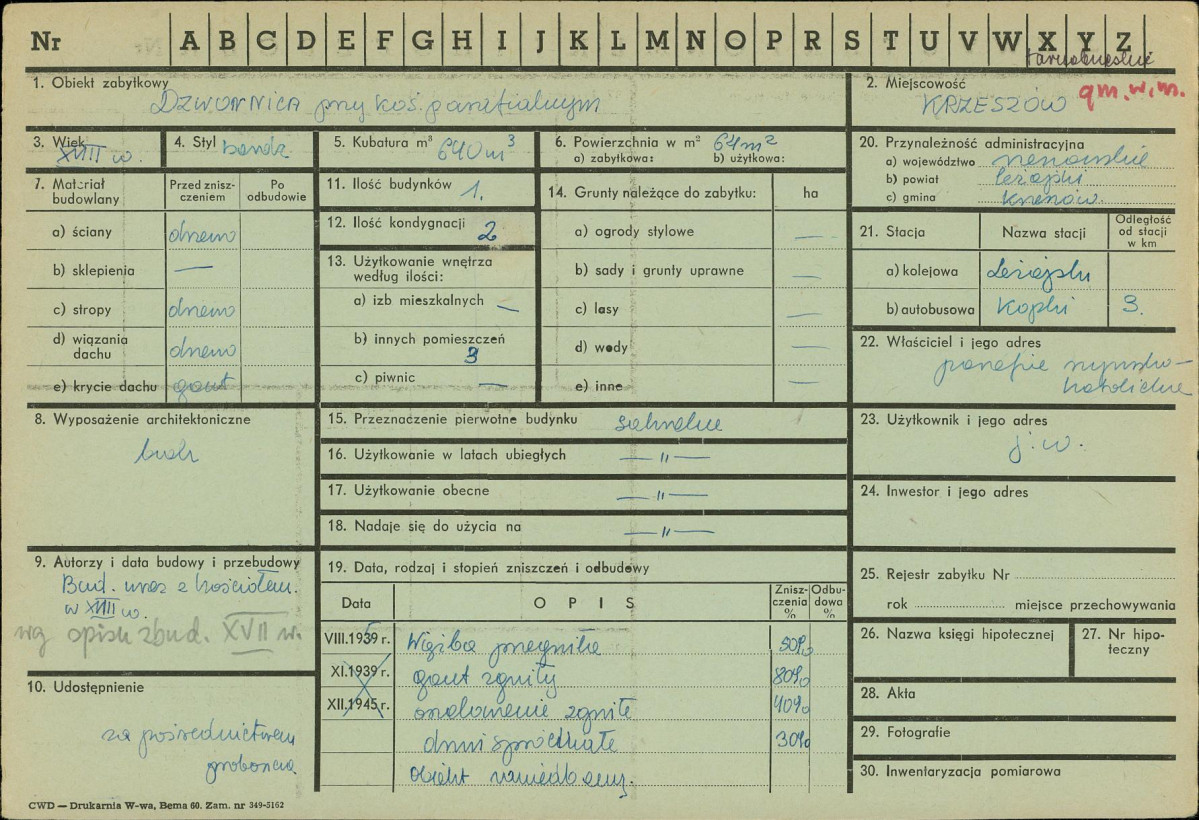 Nr A B C D E F G H I J K L M N O P R S T U V W X Y Z
tarnobrzeskie
1. Obiekt zabytkowy
DZWONNICA przy koś. parafialnym
2. Miejscowość
KRZESZÓW
gm. w. m.
3. Wiek
XVIII w.
4. Styl barok
5. Kubatura m³ 640 m³
6. Powierzchnia w m² 64 m²
a) zabytkowa: b) użytkowa:
7. Materiał budowlany
Przed znisz-
czeniem
Po
odbudowie
a) ściany drewno
b) sklepienia —
c) stropy drewno
d) wiązania
dachu drewno
e) krycie dachu gont
8. Wyposażenie architektoniczne
brak
9. Autorzy i data budowy i przebudowy
Bud. wraz z kościołem.
w XVIII w.
wg opisu zbud. XVII w.
10. Udostępnienie
za pośrednictwem
proboszcza
CWD — Drukarnia W-wa, Bema 60. Zam. nr 349-5162
11. Ilość budynków 1.
12. Ilość kondygnacji 2
13. Użytkowanie wnętrza
według ilości:
a) izb mieszkalnych —
b) innych pomieszczeń
3
c) piwnic —
14. Grunty należące do zabytku: ha
a) ogrody stylowe —
b) sady i grunty uprawne —
c) lasy —
d) wody —
e) inne —
15. Przeznaczenie pierwotne budynku sakralne
16. Użytkowanie w latach ubiegłych —"—
17. Użytkowanie obecne —"—
18. Nadaje się do użycia na —"—
19. Data, rodzaj i stopień zniszczeń i odbudowy
Data OPIS
Znisz-
czenia
%
Odbu-
dowa
%
VIII.1939 r. Więźba przegniła 50%
XI.1939 r. gont zgniły 80%
XII.1945 r. oszalowanie zgniłe 40%
drzwi spróchniałe 30%
Obiekt zaniedbany.
20. Przynależność administracyjna
a) województwo rzeszowskie
b) powiat leżajski
c) gmina Krzeszów.
21. Stacja Nazwa stacji
Odległość
od stacji
w km
a) kolejowa Leżajsk
b) autobusowa Kopki 3.
22. Właściciel i jego adres
parafie rzymsko-
katolickie
23. Użytkownik i jego adres
j. w.
24. Inwestor i jego adres
25. Rejestr zabytku Nr
rok miejsce przechowywania
26. Nazwa księgi hipotecznej
27. Nr hipo-
teczny
28. Akta
29. Fotografie
30. Inwentaryzacja pomiarowa